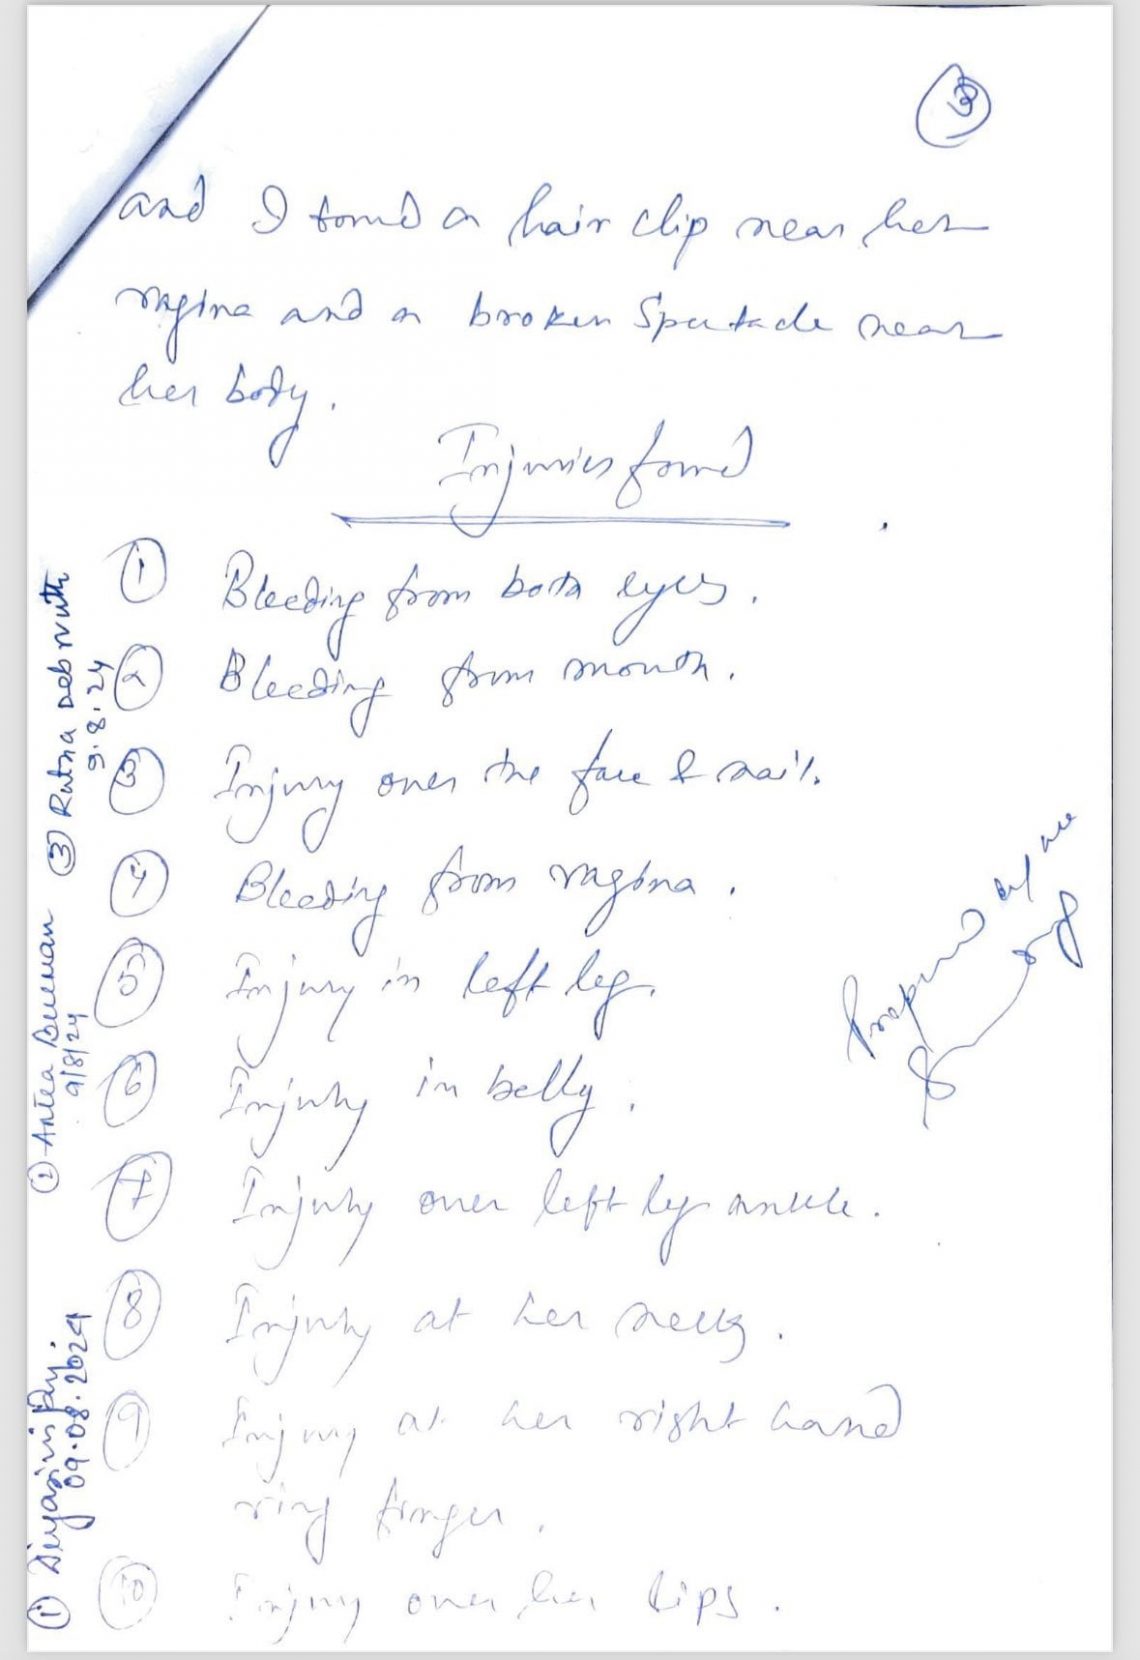 3
and I found a hair clip near her
vagina and a broken Spectacle near
her body.
Injuries found
1 Bleeding from both eyes.
2 Bleeding from mouth.
3 Injury over the face & nail.
4 Bleeding from vagina.
5 Injury in left leg.
6 Injury in belly.
7 Injury over left leg ankle.
8 Injury at her neck.
9 Injury at her right hand
ring finger.
10 Injury over her lips.
Prepared by me
1
09.08.2024
2
9/8/24
3 Ratna Debnath
9.8.24